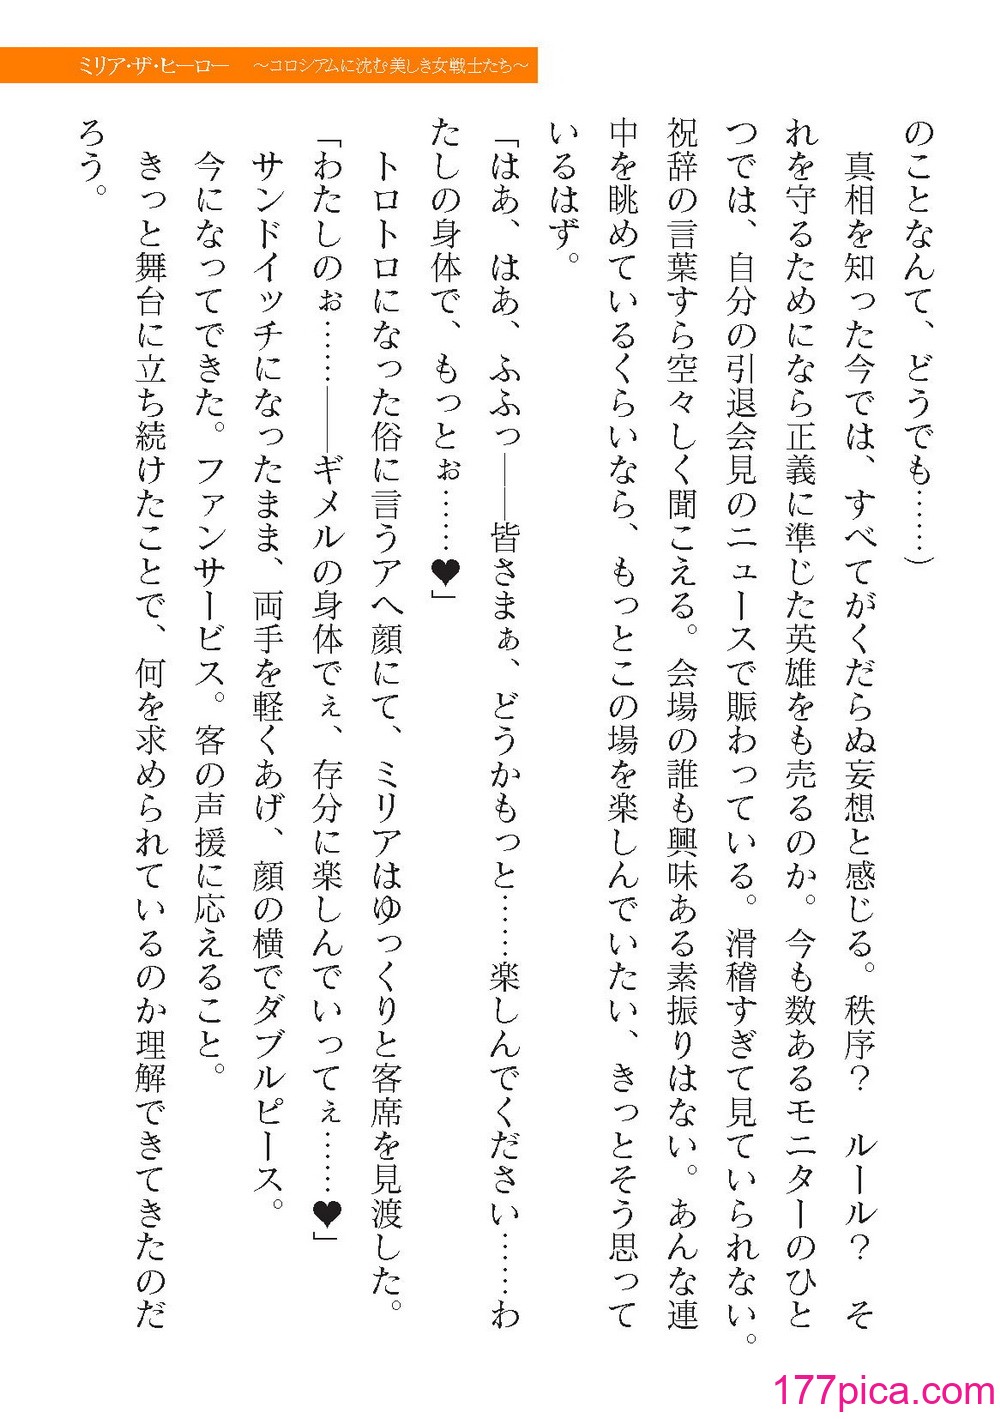 ミリア・ザ・ヒーロー　～コロシアムに沈む美しき女戦士たち～
のことなんて、どうでも……）
　真相を知った今では、すべてがくだらぬ妄想と感じる。秩序？　ルール？　そ
れを守るためになら正義に準じた英雄をも売るのか。今も数あるモニターのひと
つでは、自分の引退会見のニュースで賑わっている。滑稽すぎて見ていられない。
祝辞の言葉すら空々しく聞こえる。会場の誰も興味ある素振りはない。あんな連
中を眺めているくらいなら、もっとこの場を楽しんでいたい、きっとそう思って
いるはず。
「はあ、はあ、ふふっ――皆さまぁ、どうかもっと……楽しんでください……わ
たしの身体で、もっとぉ……♥」
　トロトロになった俗に言うアヘ顔にて、ミリアはゆっくりと客席を見渡した。
「わたしのぉ……――ギメルの身体でぇ、存分に楽しんでいってぇ……♥」
　サンドイッチになったまま、両手を軽くあげ、顔の横でダブルピース。
　今になってできた。ファンサービス。客の声援に応えること。
　きっと舞台に立ち続けたことで、何を求められているのか理解できてきたのだ
ろう。
177pica.com